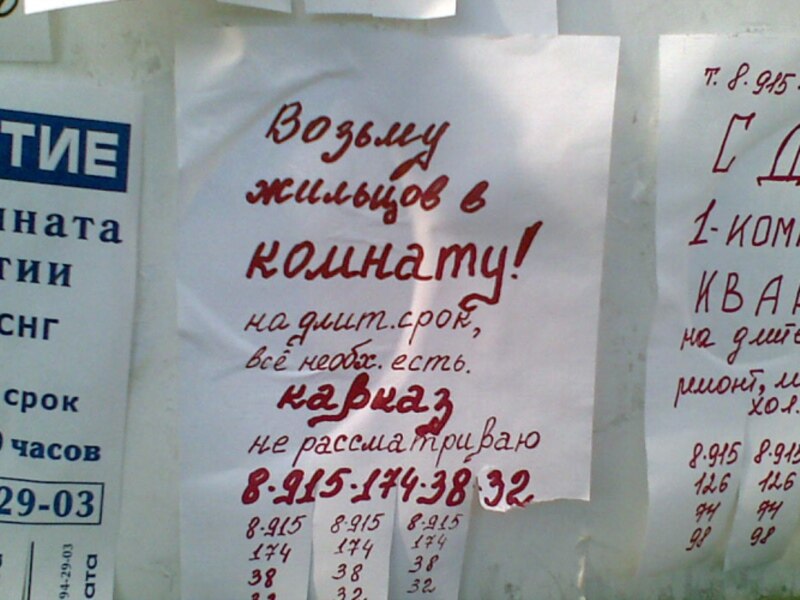 ТИЕ
ната
тии
СНГ
срок
часов
29-03
94-29-03
ата
Возьму
жильцов в
комнату!
на длит. срок,
всё необх. есть.
кавказ
не рассматриваю
8-915-174-38-32
8-915 8-915 8-915
174 174 174
38 38 38
32 32 32
т. 8-915
С Д
1-КОМ
КВА
на длите
ремонт,
хол.
8-915 8-915
126 126
94 94
98 98